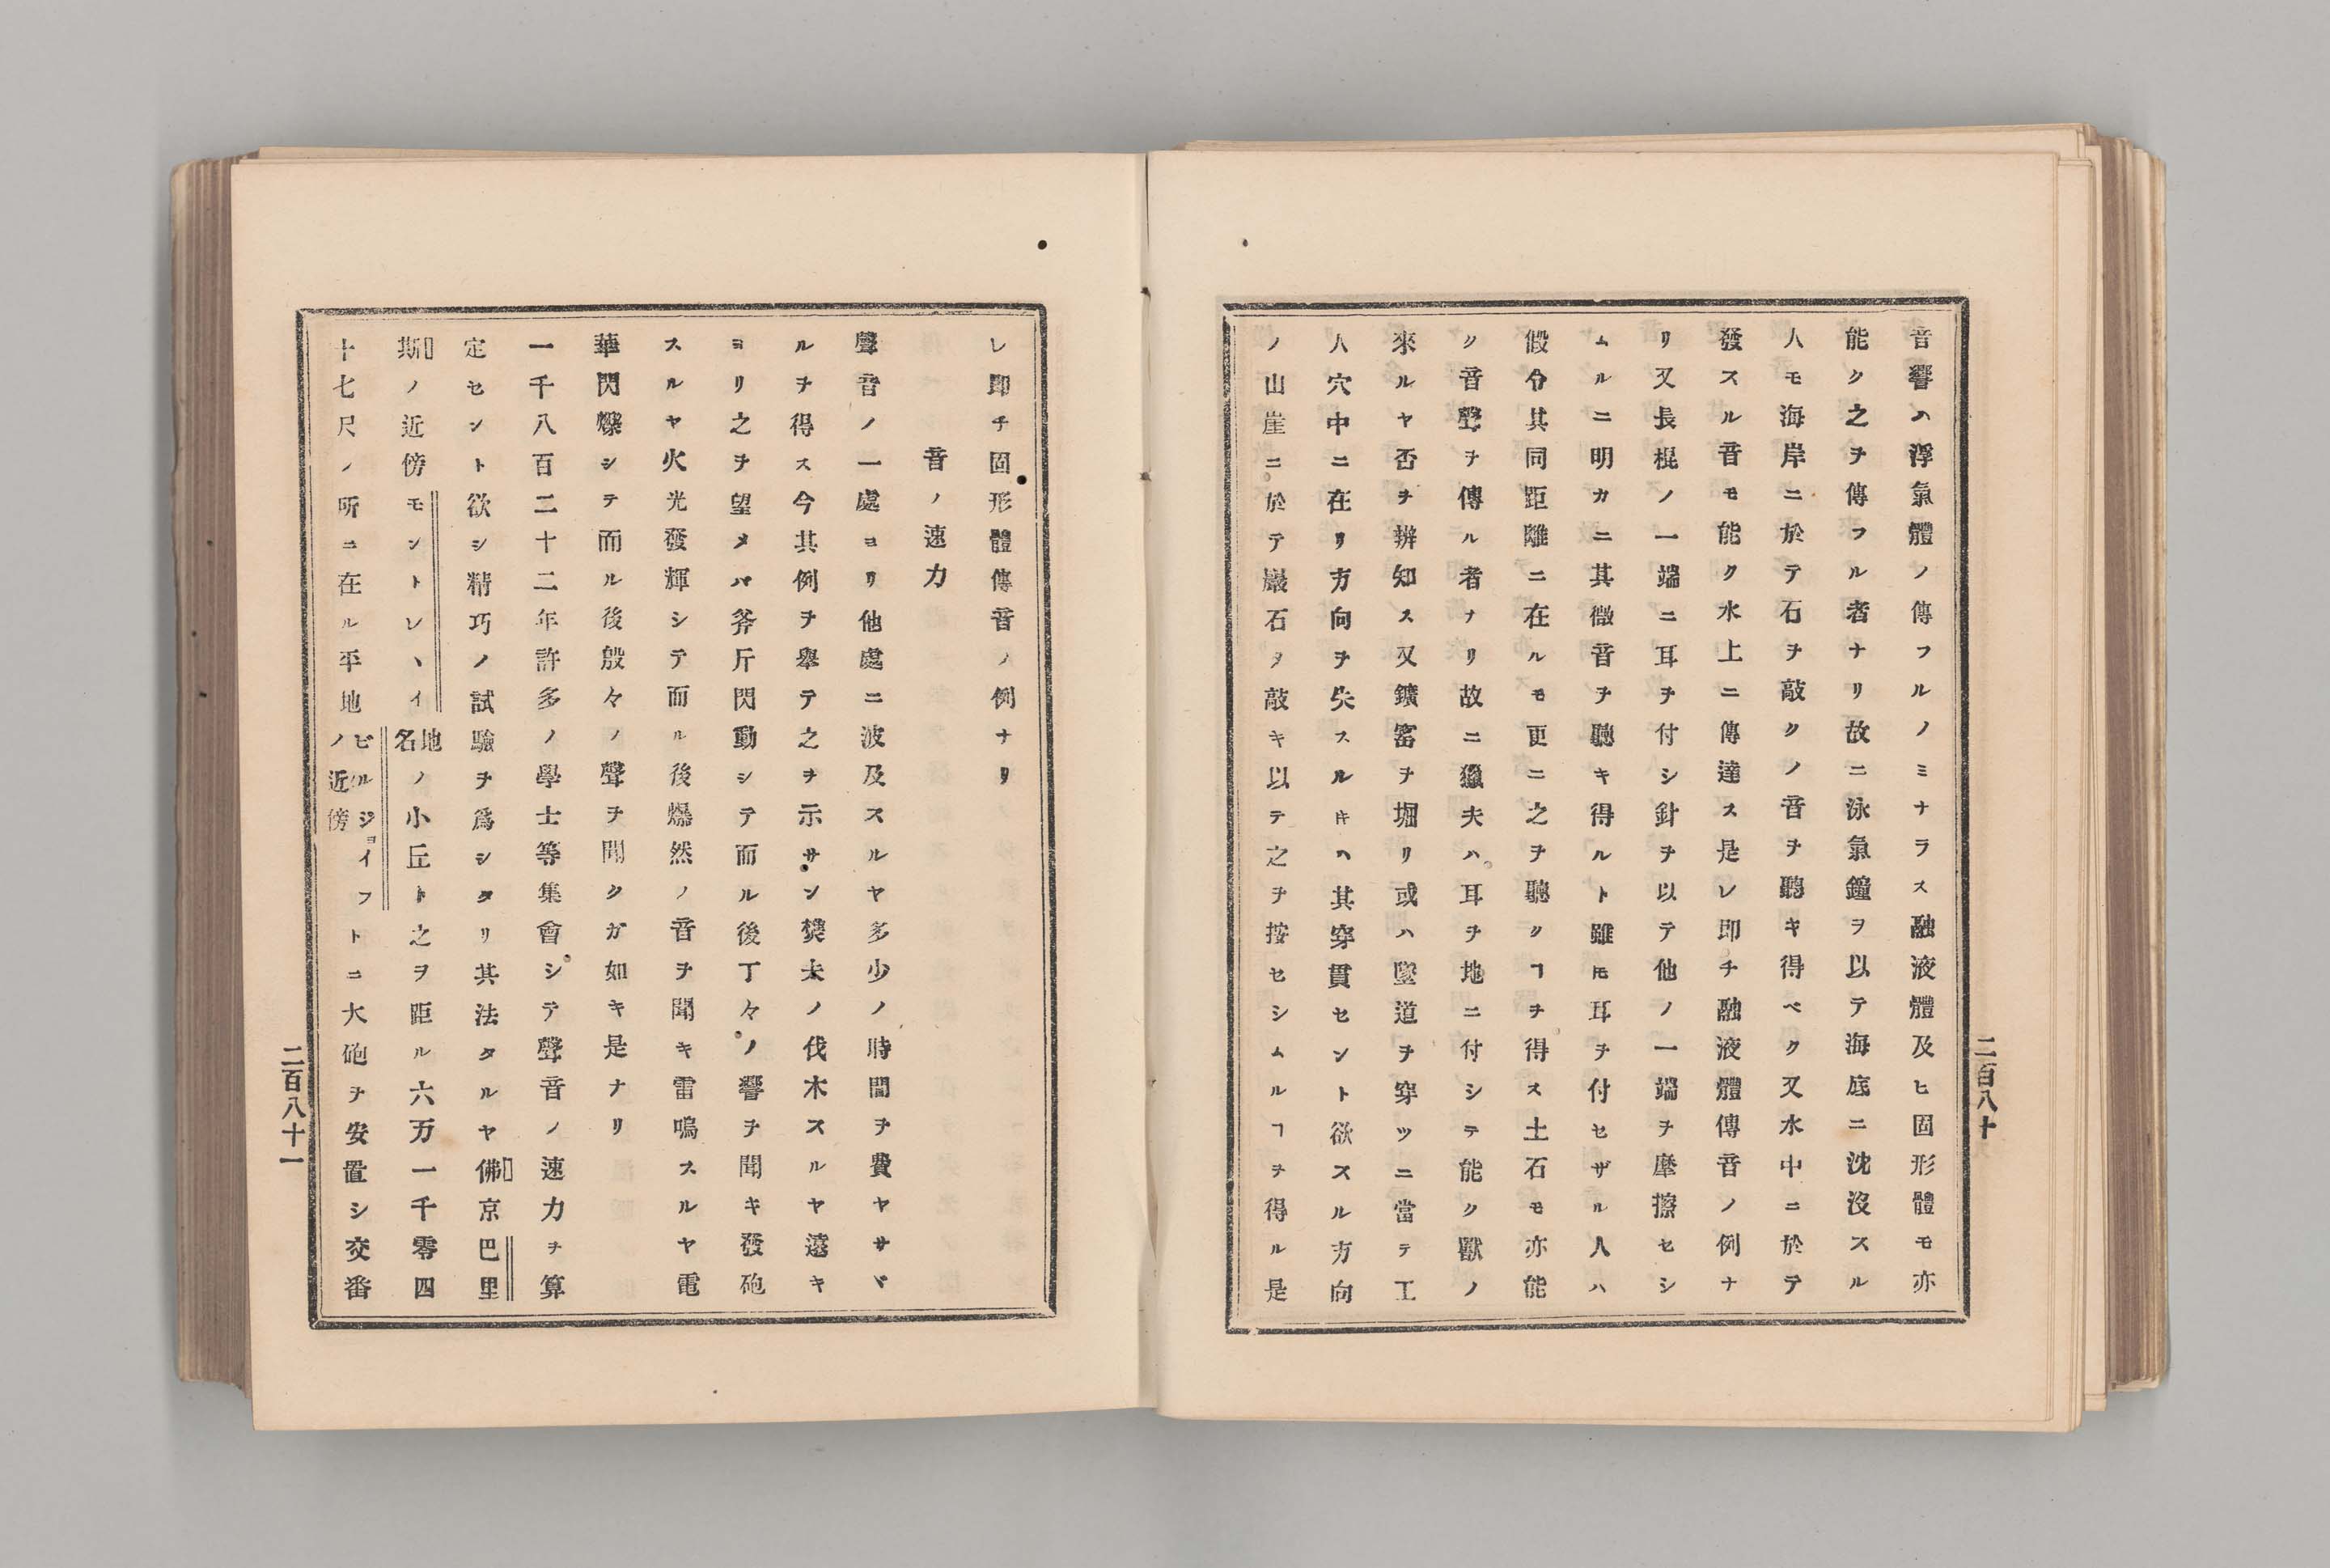 音響ハ浮氣體ノ傳フルノミナラス融液體及ヒ固形體モ亦
能ク之ヲ傳フル者ナリ故ニ泳氣鐘ヲ以テ海底ニ沈沒スル
人モ海岸ニ於テ石ヲ敲クノ音ヲ聽キ得ベク又水中ニ於テ
發スル音モ能ク水上ニ傳達ス是レ即チ融液體傳音ノ例ナ
リ又長棍ノ一端ニ耳ヲ付シ針ヲ以テ他ノ一端ヲ摩擦セシ
ムルニ明カニ其微音ヲ聽キ得ルト雖𪜈耳ヲ付セザル人ハ
假令其同距離ニ在ルモ更ニ之ヲ聽クヿヲ得ス土石モ亦能
ク音聲ヲ傳ル者ナリ故ニ獵夫ハ耳ヲ地ニ付シテ能ク獸ノ
來ルヤ否ヲ辨知ス又鑛窖ヲ堀リ或ハ墜道ヲ穿ツニ當テ工
人穴中ニ在リ方向ヲ失スルキハ其穿貫セント欲スル方向
ノ山崖ニ於テ巖石ヲ敲キ以テ之ヲ按セシムルヿヲ得ル是
二百八十
レ即チ固形體傳音ノ例ナリ
音ノ速力
聲音ノ一處ヨリ他處ニ波及スルヤ多少ノ時間ヲ費ヤサヾ
ルヲ得ス今其例ヲ舉テ之ヲ示サン樵夫ノ伐木スルヤ遠キ
ヨリ之ヲ望メハ斧斤閃動シテ而ル後丁々ノ響ヲ聞キ發砲
スルヤ火光發輝シテ而ル後爆然ノ音ヲ聞キ雷鳴スルヤ電
華閃爍シテ而ル後殷々ノ聲ヲ聞クガ如キ是ナリ
一千八百二十二年許多ノ學士等集會シテ聲音ノ速力ヲ算
定セント欲シ精巧ノ試驗ヲ爲シタリ其法タルヤ佛京巴里
斯ノ近傍モントレヽイ地名ノ小丘ト之ヲ距ル六万一千零四
十七尺ノ所ニ在ル平地ビルジョイフノ近傍トニ大砲ヲ安置シ交番
二百八十一